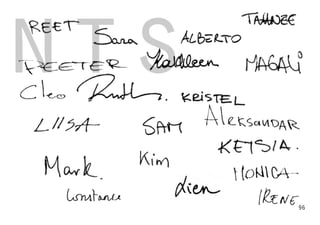 REET Sara ALBERTO TAHNEE
N T S
PEETER Kathleen MAGALÍ
Cleo Ruth KRISTEL
LIISA SAM Aleksandar
KETSIA.
Mark. Kim MONICA
Constance Lien IRENE
96